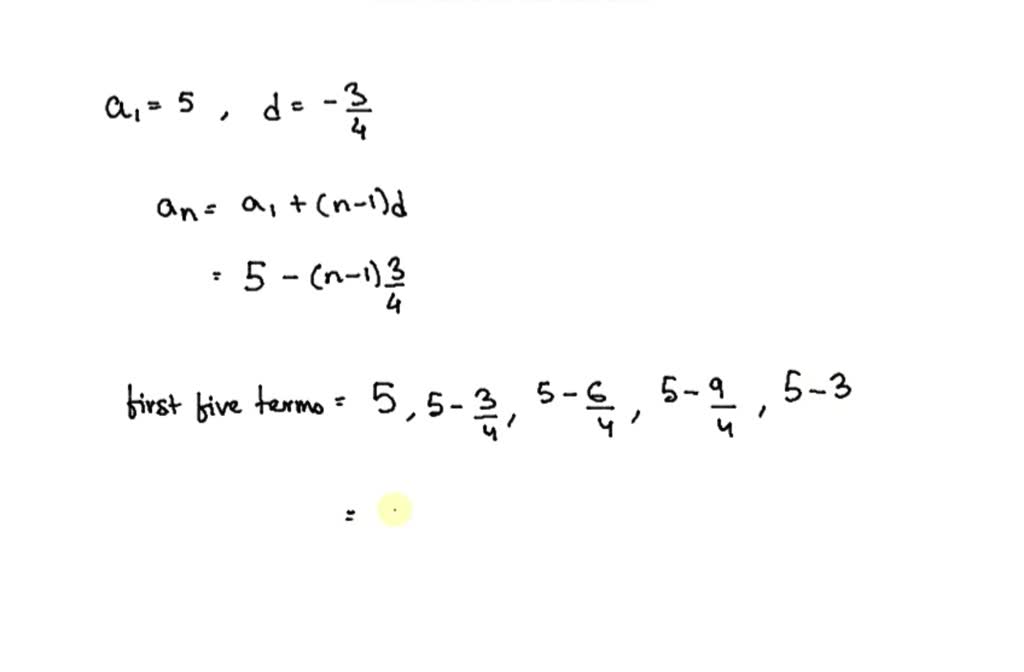 a₁ = 5 , d = -3/4
aₙ = a₁ + (n-1)d
= 5 - (n-1)3/4
first five terms = 5 , 5 - 3/4 , 5 - 6/4 , 5 - 9/4 , 5 - 3
=